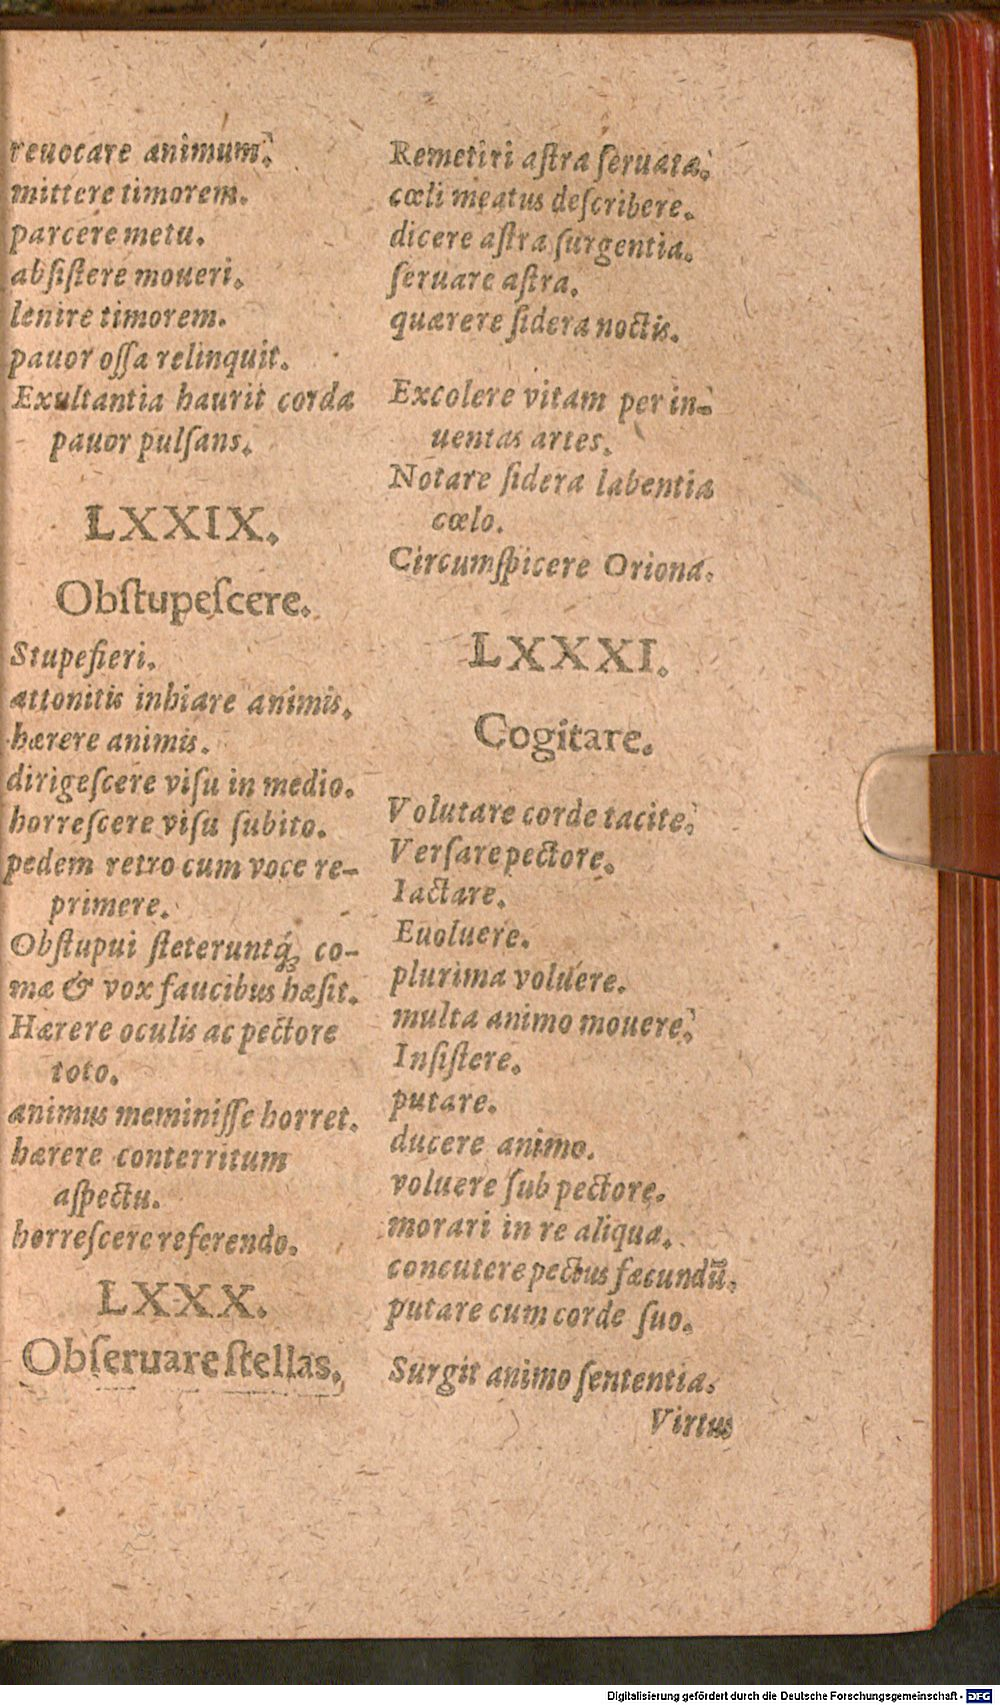 reuocare animum.
mittere timorem.
parcere metu.
absiſtere moueri.
lenire timorem.
pauor oſſa relinquit.
Exultantia haurit corda
pauor pulſans.
LXXIX.
Obſtupeſcere.
Stupefieri.
attonitis inhiare animis.
hærere animis.
dirigeſcere viſu in medio.
horreſcere viſu ſubito.
pedem retro cum voce re-
primere.
Obſtupui ſteteruntq́ꝫ co-
mæ & vox faucibus hæſit.
Hærere oculis ac pectore
toto.
animus meminiſſe horret.
hærere conterritum
aſpectu.
horreſcere referendo.
LXXX.
Obſeruare ſtellas.
Remetiri aſtra ſeruata.
cœli meatus deſcribere.
dicere aſtra ſurgentia.
ſeruare aſtra.
quærere ſidera noctis.
Excolere vitam per in-
uentas artes.
Notare ſidera labentia
cœlo.
Circumſpicere Oriona.
LXXXI.
Cogitare.
Volutare corde tacite.
Verſare pectore.
Iactare.
Euoluere.
plurima voluere.
multa animo mouere.
Inſiſtere.
putare.
ducere animo.
voluere ſub pectore.
morari in re aliqua.
concutere pectus fæcundũ.
putare cum corde ſuo.
Surgit animo ſententia.
Virtus
Digitalisierung gefördert durch die Deutsche Forschungsgemeinschaft - DFG